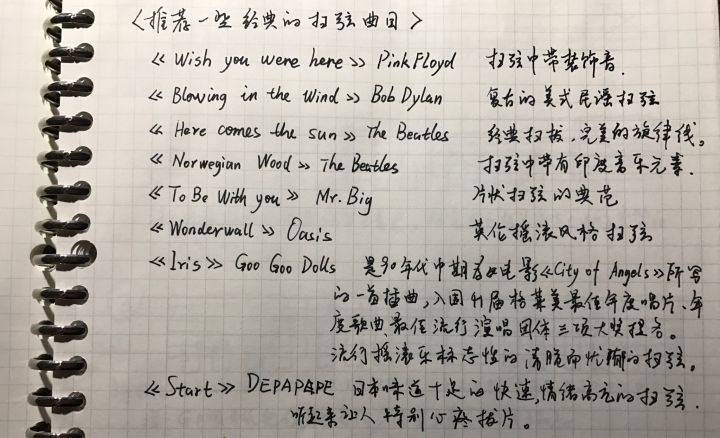 <推荐一些经典的扫弦曲目>
《Wish you were here》 Pink Floyd 扫弦中带装饰音.
《Blowing in the Wind》 Bob Dylan 复古的美式民谣扫弦
《Here comes the sun》 The Beatles 经典扫拨,完美的旋律线。
《Norwegian Wood》 The Beatles 扫弦中带有印度音乐元素.
《To Be With you》 Mr. Big 片状扫弦的典范
《Wonderwall》 Oasis 英伦摇滚风格扫弦
《Iris》 Goo Goo Dolls 是90年代中期为电影《City of Angels》所写
的一首插曲,入围41届格莱美最佳年度唱片、年
度歌曲、最佳流行演唱团体三项大奖提名。
流行摇滚乐标志性的清脆而忧郁的扫弦。
《Start》 DEPAPEPE 日本味道十足的快速,情绪高亢的扫弦.
听起来让人特别心疼拨片。